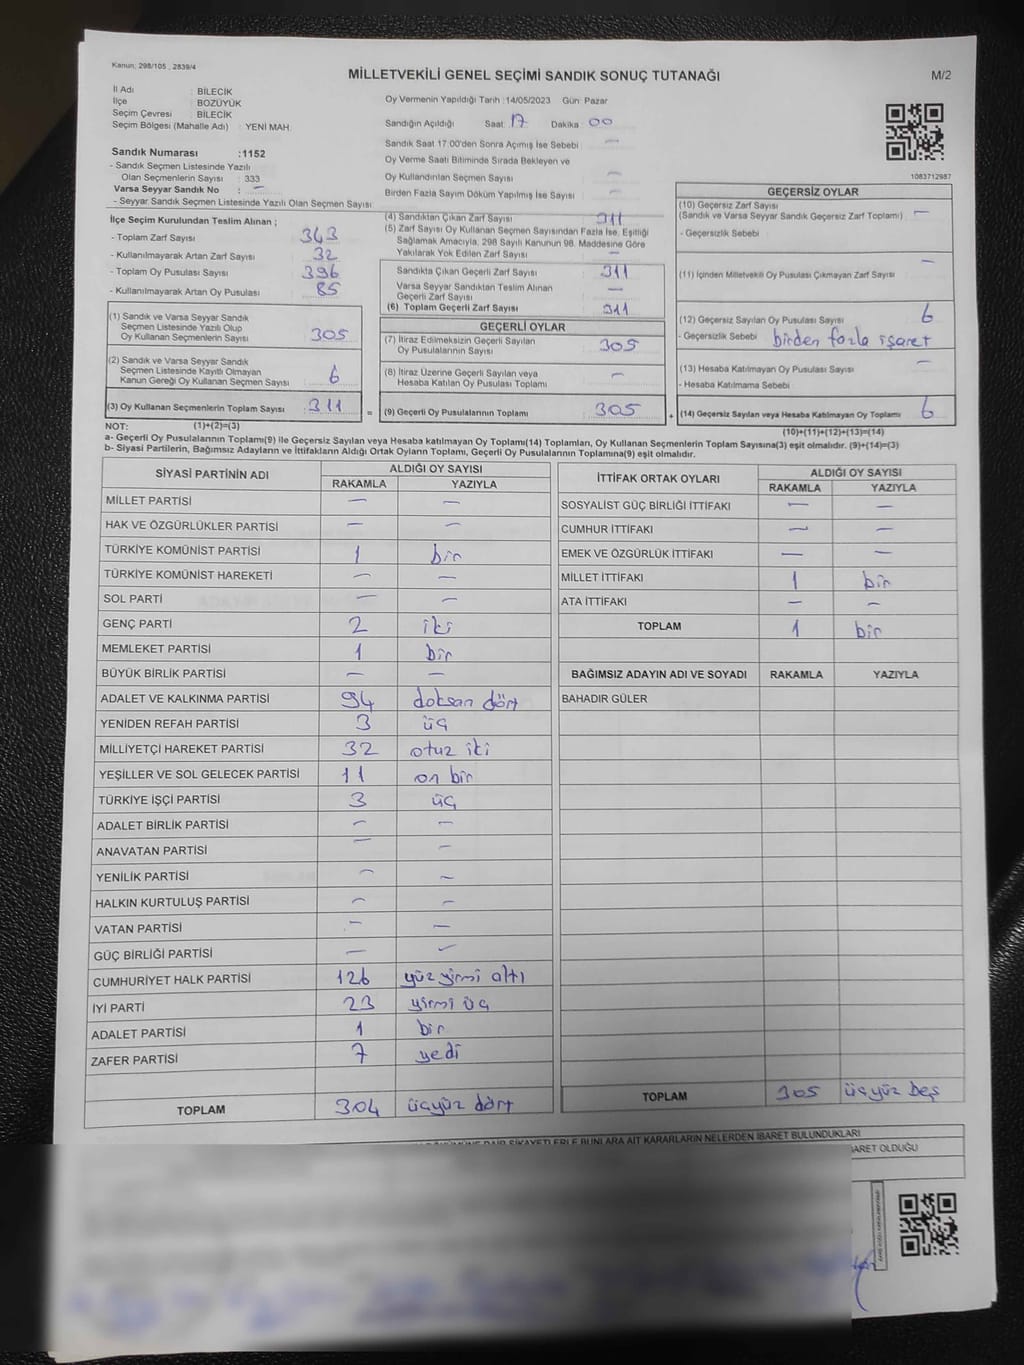 Kanun; 298/105 , 2839/4
MİLLETVEKİLİ GENEL SEÇİMİ SANDIK SONUÇ TUTANAĞI
M/2
İl Adı : BİLECİK
İlçe : BOZÜYÜK
Seçim Çevresi : BİLECİK
Seçim Bölgesi (Mahalle Adı) : YENİ MAH.
Sandık Numarası :1152
- Sandık Seçmen Listesinde Yazılı
Olan Seçmenlerin Sayısı : 333
Varsa Seyyar Sandık No : —
- Seyyar Sandık Seçmen Listesinde Yazılı Olan Seçmen Sayısı:
Oy Vermenin Yapıldığı Tarih :14/05/2023 Gün: Pazar
Sandığın Açıldığı Saat: 17 Dakika: 00
Sandık Saat 17:00'den Sonra Açımış İse Sebebi —
Oy Verme Saati Bitiminde Sırada Bekleyen ve
Oy Kullandırılan Seçmen Sayısı —
Birden Fazla Sayım Döküm Yapılmış İse Sayısı —
1083712987
İlçe Seçim Kurulundan Teslim Alınan ;
- Toplam Zarf Sayısı 343
- Kullanılmayarak Artan Zarf Sayısı 32
- Toplam Oy Pusulası Sayısı 396
- Kullanılmayarak Artan Oy Pusulası 85
(1) Sandık ve Varsa Seyyar Sandık
Seçmen Listesinde Yazılı Olup
Oy Kullanan Seçmenlerin Sayısı 305
(2) Sandık ve Varsa Seyyar Sandık
Seçmen Listesinde Kayıtlı Olmayan
Kanun Gereği Oy Kullanan Seçmen Sayısı 6
(3) Oy Kullanan Seçmenlerin Toplam Sayısı 311 =
(4) Sandıktan Çıkan Zarf Sayısı 311
(5) Zarf Sayısı Oy Kullanan Seçmen Sayısından Fazla İse, Eşitliği
Sağlamak Amacıyla, 298 Sayılı Kanunun 98. Maddesine Göre
Yakılarak Yok Edilen Zarf Sayısı —
Sandıkta Çıkan Geçerli Zarf Sayısı 311
Varsa Seyyar Sandıktan Teslim Alınan
Geçerli Zarf Sayısı —
(6) Toplam Geçerli Zarf Sayısı 311
GEÇERLİ OYLAR
(7) İtiraz Edilmeksizin Geçerli Sayılan
Oy Pusulalarının Sayısı 305
(8) İtiraz Üzerine Geçerli Sayılan veya
Hesaba Katılan Oy Pusulası Toplamı —
(9) Geçerli Oy Pusulalarının Toplamı 305 +
GEÇERSİZ OYLAR
(10) Geçersiz Zarf Sayısı
(Sandık ve Varsa Seyyar Sandık Geçersiz Zarf Toplamı) —
- Geçersizlik Sebebi :
(11) İçinden Milletvekili Oy Pusulası Çıkmayan Zarf Sayısı —
(12) Geçersiz Sayılan Oy Pusulası Sayısı 6
- Geçersizlik Sebebi birden fazla işaret
(13) Hesaba Katılmayan Oy Pusulası Sayısı —
- Hesaba Katılmama Sebebi
(14) Geçersiz Sayılan veya Hesaba Katılmayan Oy Toplamı 6
NOT: (1)+(2)=(3)
(10)+(11)+(12)+(13)=(14)
a- Geçerli Oy Pusulalarının Toplamı(9) ile Geçersiz Sayılan veya Hesaba katılmayan Oy Toplamı(14) Toplamları, Oy Kullanan Seçmenlerin Toplam Sayısına(3) eşit olmalıdır. (9)+(14)=(3)
b- Siyasi Partilerin, Bağımsız Adayların ve İttifakların Aldığı Ortak Oyların Toplamı, Geçerli Oy Pusulalarının Toplamına(9) eşit olmalıdır.
SİYASİ PARTİNİN ADI
ALDIĞI OY SAYISI
RAKAMLA YAZIYLA
MİLLET PARTİSİ — —
HAK VE ÖZGÜRLÜKLER PARTİSİ — —
TÜRKİYE KOMÜNİST PARTİSİ 1 bir
TÜRKİYE KOMÜNİST HAREKETİ — —
SOL PARTİ — —
GENÇ PARTİ 2 iki
MEMLEKET PARTİSİ 1 bir
BÜYÜK BİRLİK PARTİSİ — —
ADALET VE KALKINMA PARTİSİ 94 doksan dört
YENİDEN REFAH PARTİSİ 3 üç
MİLLİYETÇİ HAREKET PARTİSİ 32 otuz iki
YEŞİLLER VE SOL GELECEK PARTİSİ 11 on bir
TÜRKİYE İŞÇİ PARTİSİ 3 üç
ADALET BİRLİK PARTİSİ — —
ANAVATAN PARTİSİ — —
YENİLİK PARTİSİ — —
HALKIN KURTULUŞ PARTİSİ — —
VATAN PARTİSİ — —
GÜÇ BİRLİĞİ PARTİSİ — —
CUMHURİYET HALK PARTİSİ 126 yüz yirmi altı
İYİ PARTİ 23 yirmi üç
ADALET PARTİSİ 1 bir
ZAFER PARTİSİ 7 yedi
TOPLAM 304 üçyüz dört
İTTİFAK ORTAK OYLARI
ALDIĞI OY SAYISI
RAKAMLA YAZIYLA
SOSYALİST GÜÇ BİRLİĞİ İTTİFAKI — —
CUMHUR İTTİFAKI — —
EMEK VE ÖZGÜRLÜK İTTİFAKI — —
MİLLET İTTİFAKI 1 bir
ATA İTTİFAKI — —
TOPLAM 1 bir
BAĞIMSIZ ADAYIN ADI VE SOYADI RAKAMLA YAZIYLA
BAHADIR GÜLER
TOPLAM 305 üçyüz beş
ŞİKAYETLERLE BUNLARA AİT KARARLARIN NELERDEN İBARET BULUNDUKLARI
İBARET OLDUĞU